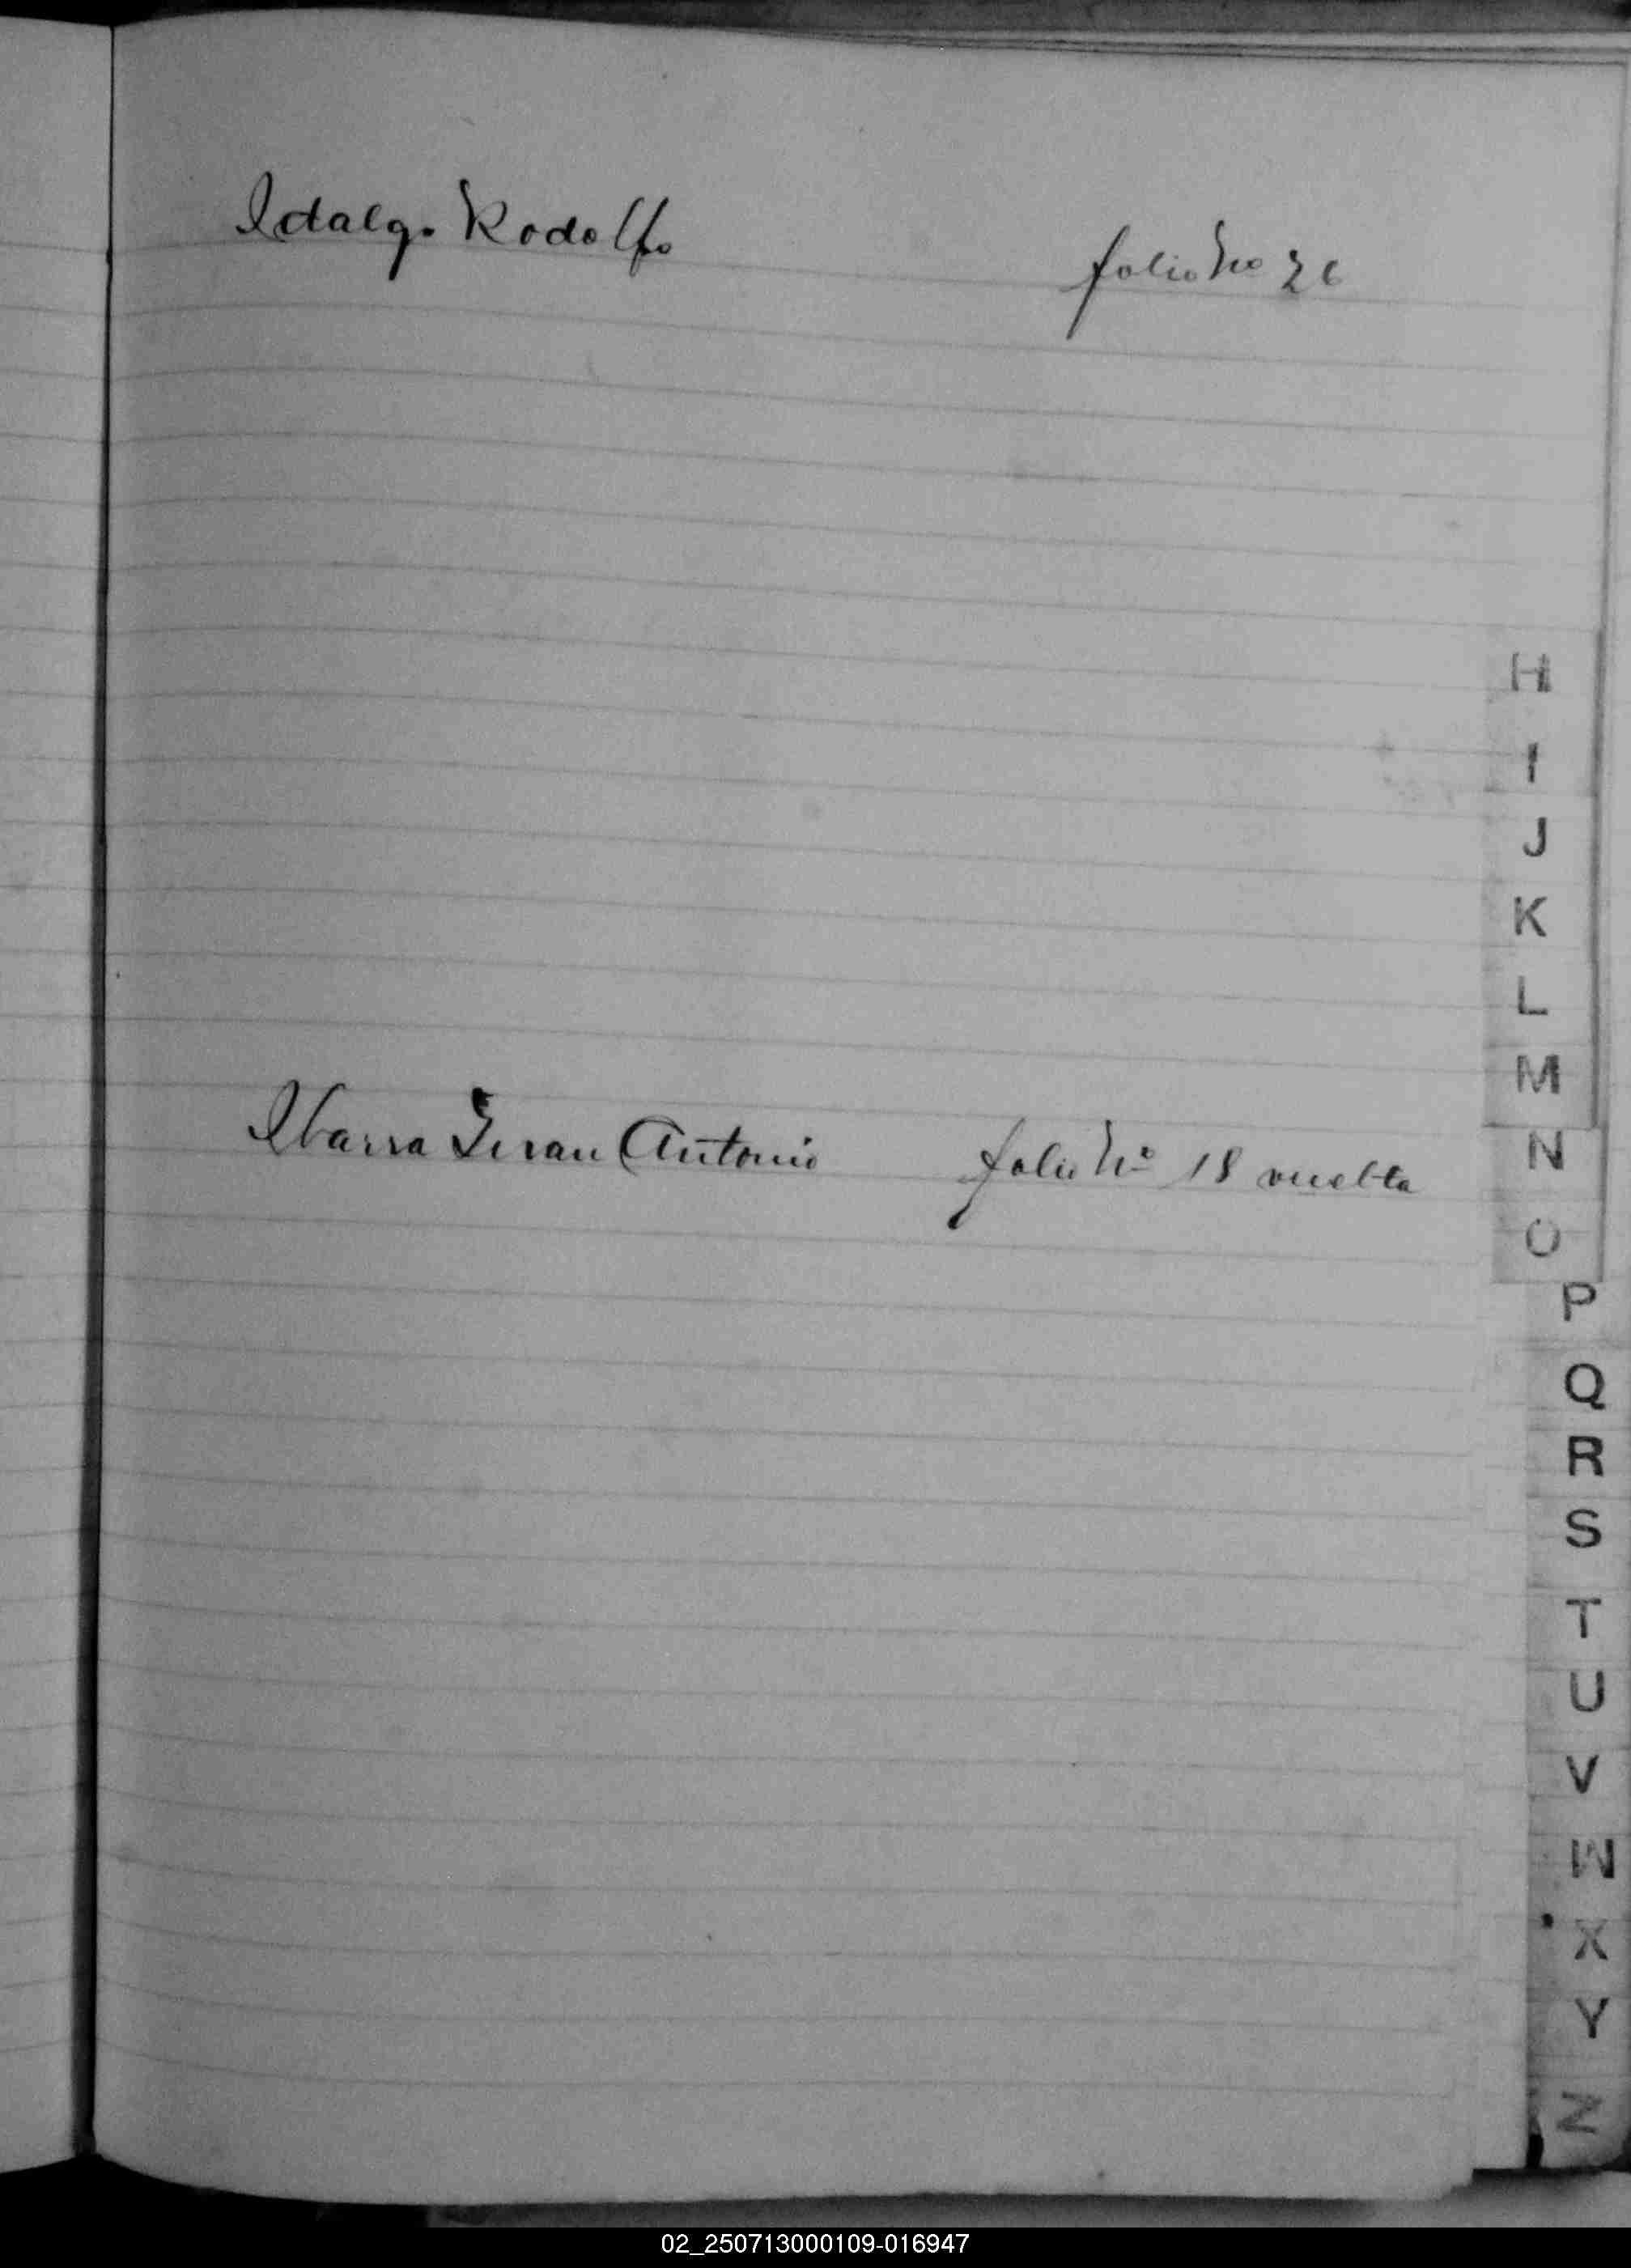 Idalgo Rodolfo folio No 26
H
I
J
K
L
M
Ibarra Juan Antonio folio No 18 vuelta
N
O
P
Q
R
S
T
U
V
W
X
Y
Z
02_250713000109-016947